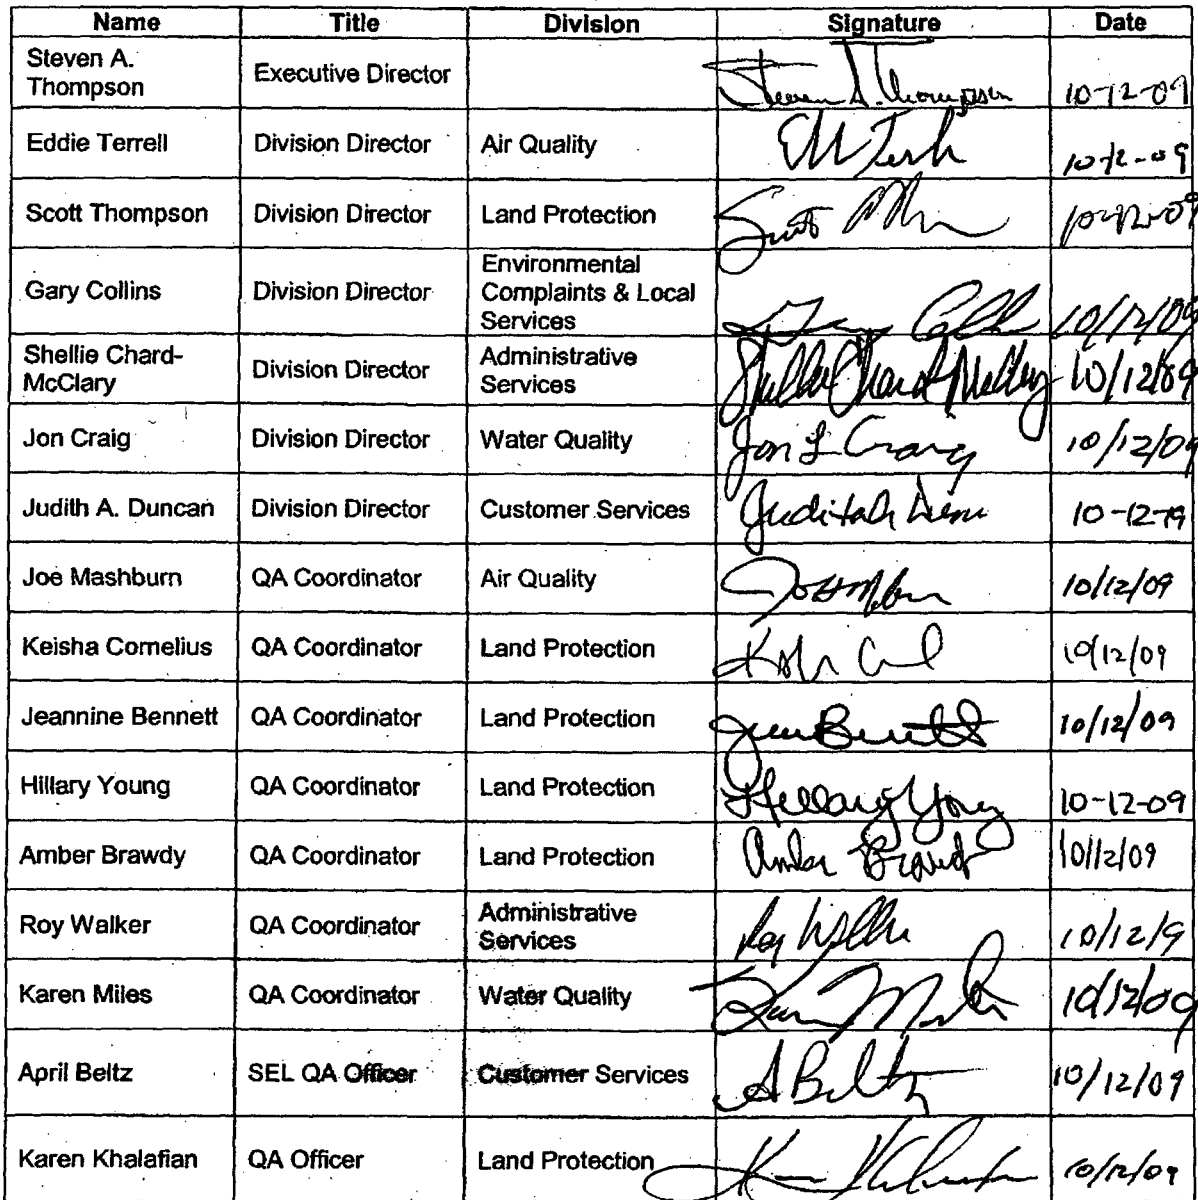 Name Title Division Signature Date
Steven A. Thompson Executive Director Steven A. Thompson 10-12-09
Eddie Terrell Division Director Air Quality 10-12-09
Scott Thompson Division Director Land Protection Scott 10-12-09
Gary Collins Division Director Environmental Complaints & Local Services Gary 10/12/09
Shellie Chard-McClary Division Director Administrative Services Shellie Chard McClary 10/12/09
Jon Craig Division Director Water Quality Jon L Craig 10/12/09
Judith A. Duncan Division Director Customer Services Judith A 10-12-
Joe Mashburn QA Coordinator Air Quality 10/12/09
Keisha Cornelius QA Coordinator Land Protection 10/12/09
Jeannine Bennett QA Coordinator Land Protection Bennett 10/12/09
Hillary Young QA Coordinator Land Protection Hillary Young 10-12-09
Amber Brawdy QA Coordinator Land Protection Amber Brawdy 10/12/09
Roy Walker QA Coordinator Administrative Services Roy Walker 10/12/9
Karen Miles QA Coordinator Water Quality Karen 10/12/09
April Beltz SEL QA Officer Customer Services A Beltz 10/12/09
Karen Khalafian QA Officer Land Protection 10/12/09